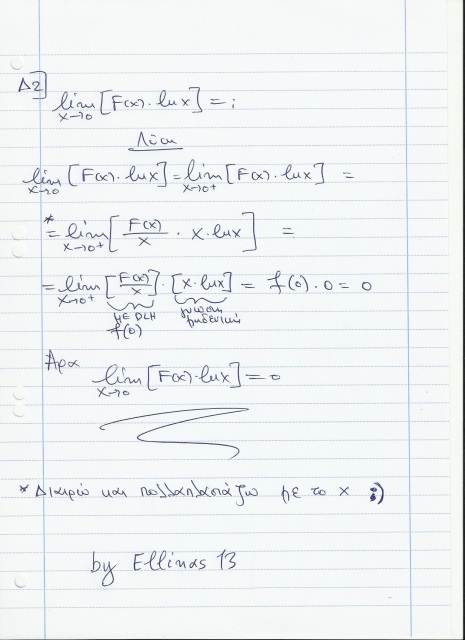 Δ2] lim x→0 [F(x)·lnx] = ;
Λύση
lim x→0 [F(x)·lnx] = lim x→0+ [F(x)·lnx] =
* = lim x→0+ [F(x)/x · x·lnx] =
= lim x→0+ [F(x)/x] · [x·lnx] = f(0)·0 = 0
ΜΕ DLH
f(0)
Άρα
lim x→0 [F(x)·lnx] = 0
* Διαιρώ και πολλαπλασιάζω με το x ;)
by Ellinas 13